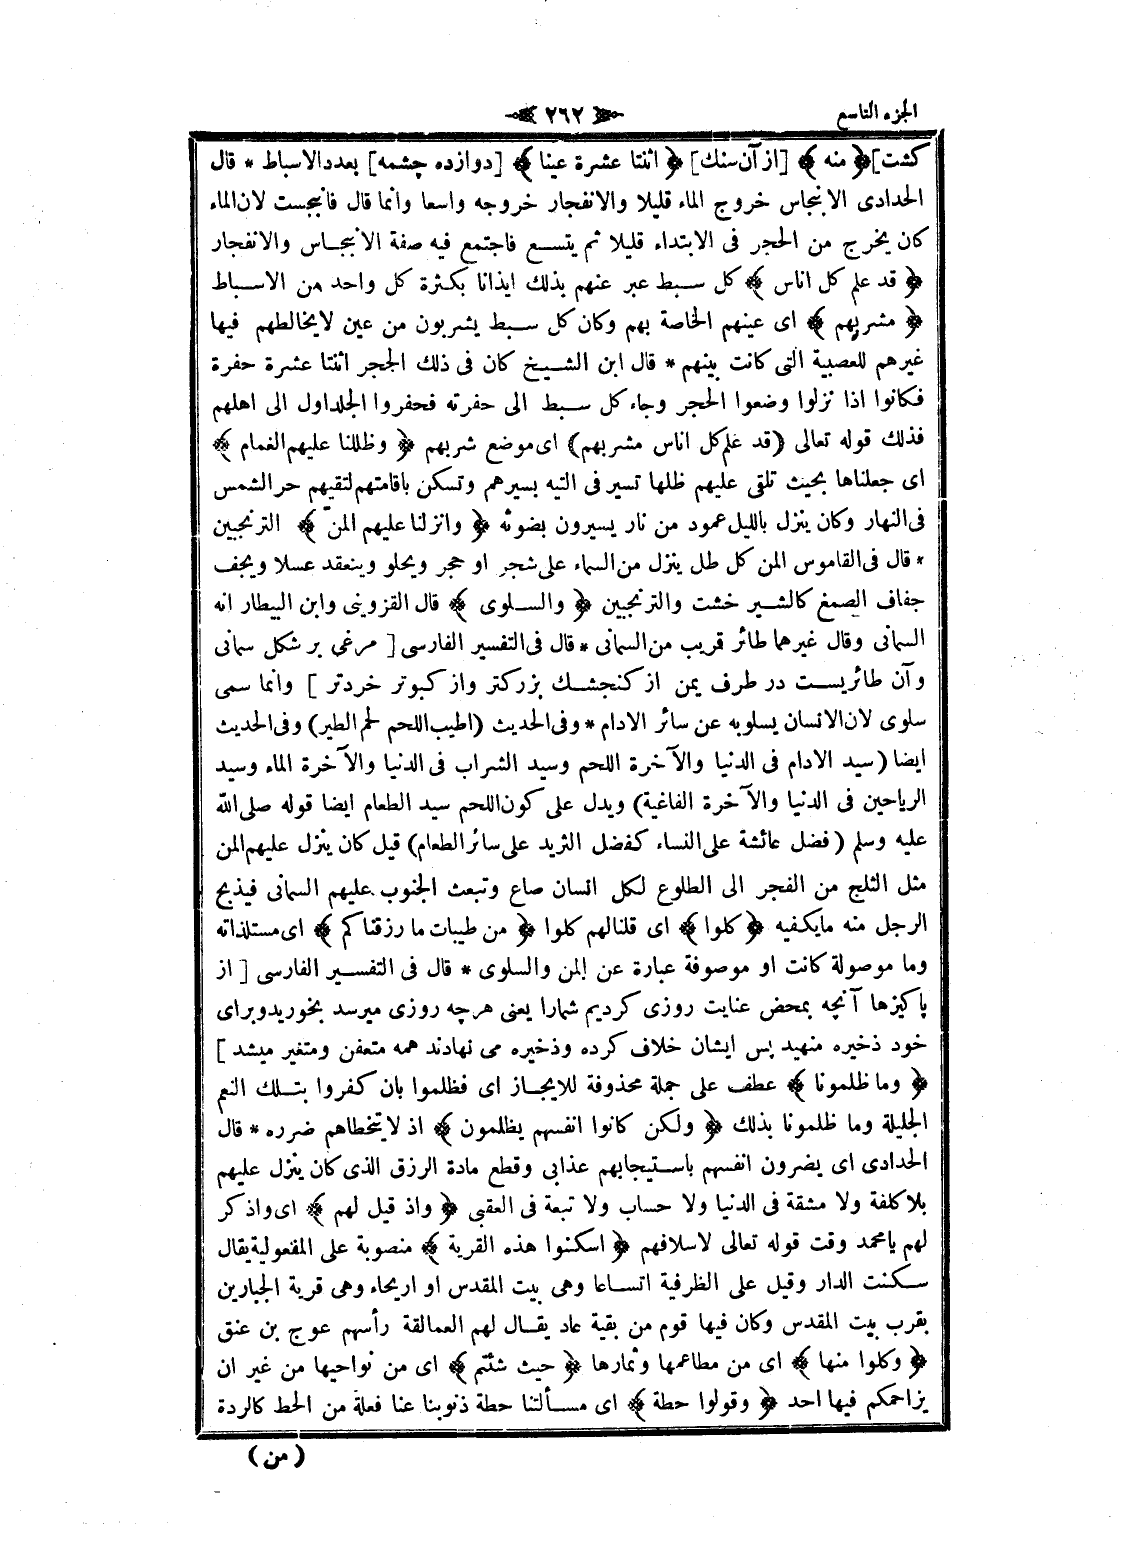 الجزء التاسع ‏﴿ ٢٦٢ ﴾
كشت] ﴿ منه ﴾ [از آن سنك] ﴿ اثنتا عشرة عينا ﴾ [دوازده چشمه] بعدد الاسباط * قال
الحدادى الانبجاس خروج الماء قليلا والانفجار خروجه واسعا وانما قال فانبجست لان الماء
كان يخرج من الحجر فى الابتداء قليلا ثم يتسع فاجتمع فيه صفة الانبجاس والانفجار
﴿ قد علم كل اناس ﴾ كل سبط عبر عنهم بذلك ايذانا بكثرة كل واحد من الاسباط
﴿ مشربهم ﴾ اى عينهم الخاصة بهم وكان كل سبط يشربون من عين لايخالطهم فيها
غيرهم للعصبية التى كانت بينهم * قال ابن الشيخ كان فى ذلك الحجر اثنتا عشرة حفرة
فكانوا اذا نزلوا وضعوا الحجر وجاء كل سبط الى حفرته فحفروا الجداول الى اهلهم
فذلك قوله تعالى (قد علم كل اناس مشربهم) اى موضع شربهم ﴿ وظللنا عليهم الغمام ﴾
اى جعلناها بحيث تلقى عليهم ظلها تسير فى التيه بسيرهم وتسكن باقامتهم لتقيهم حر الشمس
فى النهار وكان ينزل بالليل عمود من نار يسيرون بضوئه ﴿ وانزلنا عليهم المنّ ﴾ الترنجبين
* قال فى القاموس المن كل طل ينزل من السماء على شجر او حجر ويحلو وينعقد عسلا ويجف
جفاف الصمغ كالشير خشت والترنجبين ﴿ والسلوى ﴾ قال القزوينى وابن البيطار انه
السمانى وقال غيرهما طائر قريب من السمانى * قال فى التفسير الفارسى [ مرغى بر شكل سمانى
وآن طائريست در طرف يمن از كنجشك بزركتر واز كبوتر خردتر ] وانما سمى
سلوى لان الانسان يسلوبه عن سائر الادام * وفى الحديث (اطيب اللحم لحم الطير) وفى الحديث
ايضا (سيد الادام فى الدنيا والآخرة اللحم وسيد الشراب فى الدنيا والآخرة الماء وسيد
الرياحين فى الدنيا والآخرة الفاغية) ويدل على كون اللحم سيد الطعام ايضا قوله صلى الله
عليه وسلم (فضل عائشة على النساء كفضل الثريد على سائر الطعام) قيل كان ينزل عليهم المن
مثل الثلج من الفجر الى الطلوع لكل انسان صاع وتبعث الجنوب عليهم السمانى فيذبح
الرجل منه مايكفيه ﴿ كلوا ﴾ اى قلنالهم كلوا ﴿ من طيبات ما رزقناكم ﴾ اى مستلذاته
وما موصولة كانت او موصوفة عبارة عن المن والسلوى * قال فى التفسير الفارسى [ از
پاكيزها آنچه بمحض عنايت روزى كرديم شمارا يعنى هرچه روزى ميرسد بخوريد وبراى
خود ذخيره منهيد پس ايشان خلاف كرده وذخيره مى نهادند همه متعفن ومتغير ميشد ]
﴿ وما ظلمونا ﴾ عطف على جملة محذوفة للايجاز اى فظلموا بان كفروا بتلك النعم
الجليلة وما ظلمونا بذلك ﴿ ولكن كانوا انفسهم يظلمون ﴾ اذ لايتخطاهم ضرره * قال
الحدادى اى يضرون انفسهم باستيجابهم عذابى وقطع مادة الرزق الذى كان ينزل عليهم
بلا كلفة ولا مشقة فى الدنيا ولا حساب ولا تبعة فى العقبى ﴿ واذ قيل لهم ﴾ اى واذكر
لهم يامحمد وقت قوله تعالى لاسلافهم ﴿ اسكنوا هذه القرية ﴾ منصوبة على المفعولية يقال
سكنت الدار وقيل على الظرفية اتساعا وهى بيت المقدس او اريحاء وهى قرية الجبارين
بقرب بيت المقدس وكان فيها قوم من بقية عاد يقال لهم العمالقة رأسهم عوج بن عنق
﴿ وكلوا منها ﴾ اى من مطاعمها وثمارها ﴿ حيث شئتم ﴾ اى من نواحيها من غير ان
يزاحمكم فيها احد ﴿ وقولوا حطة ﴾ اى مسألتنا حطة ذنوبنا عنا فعلة من الحط كالردة
( من )